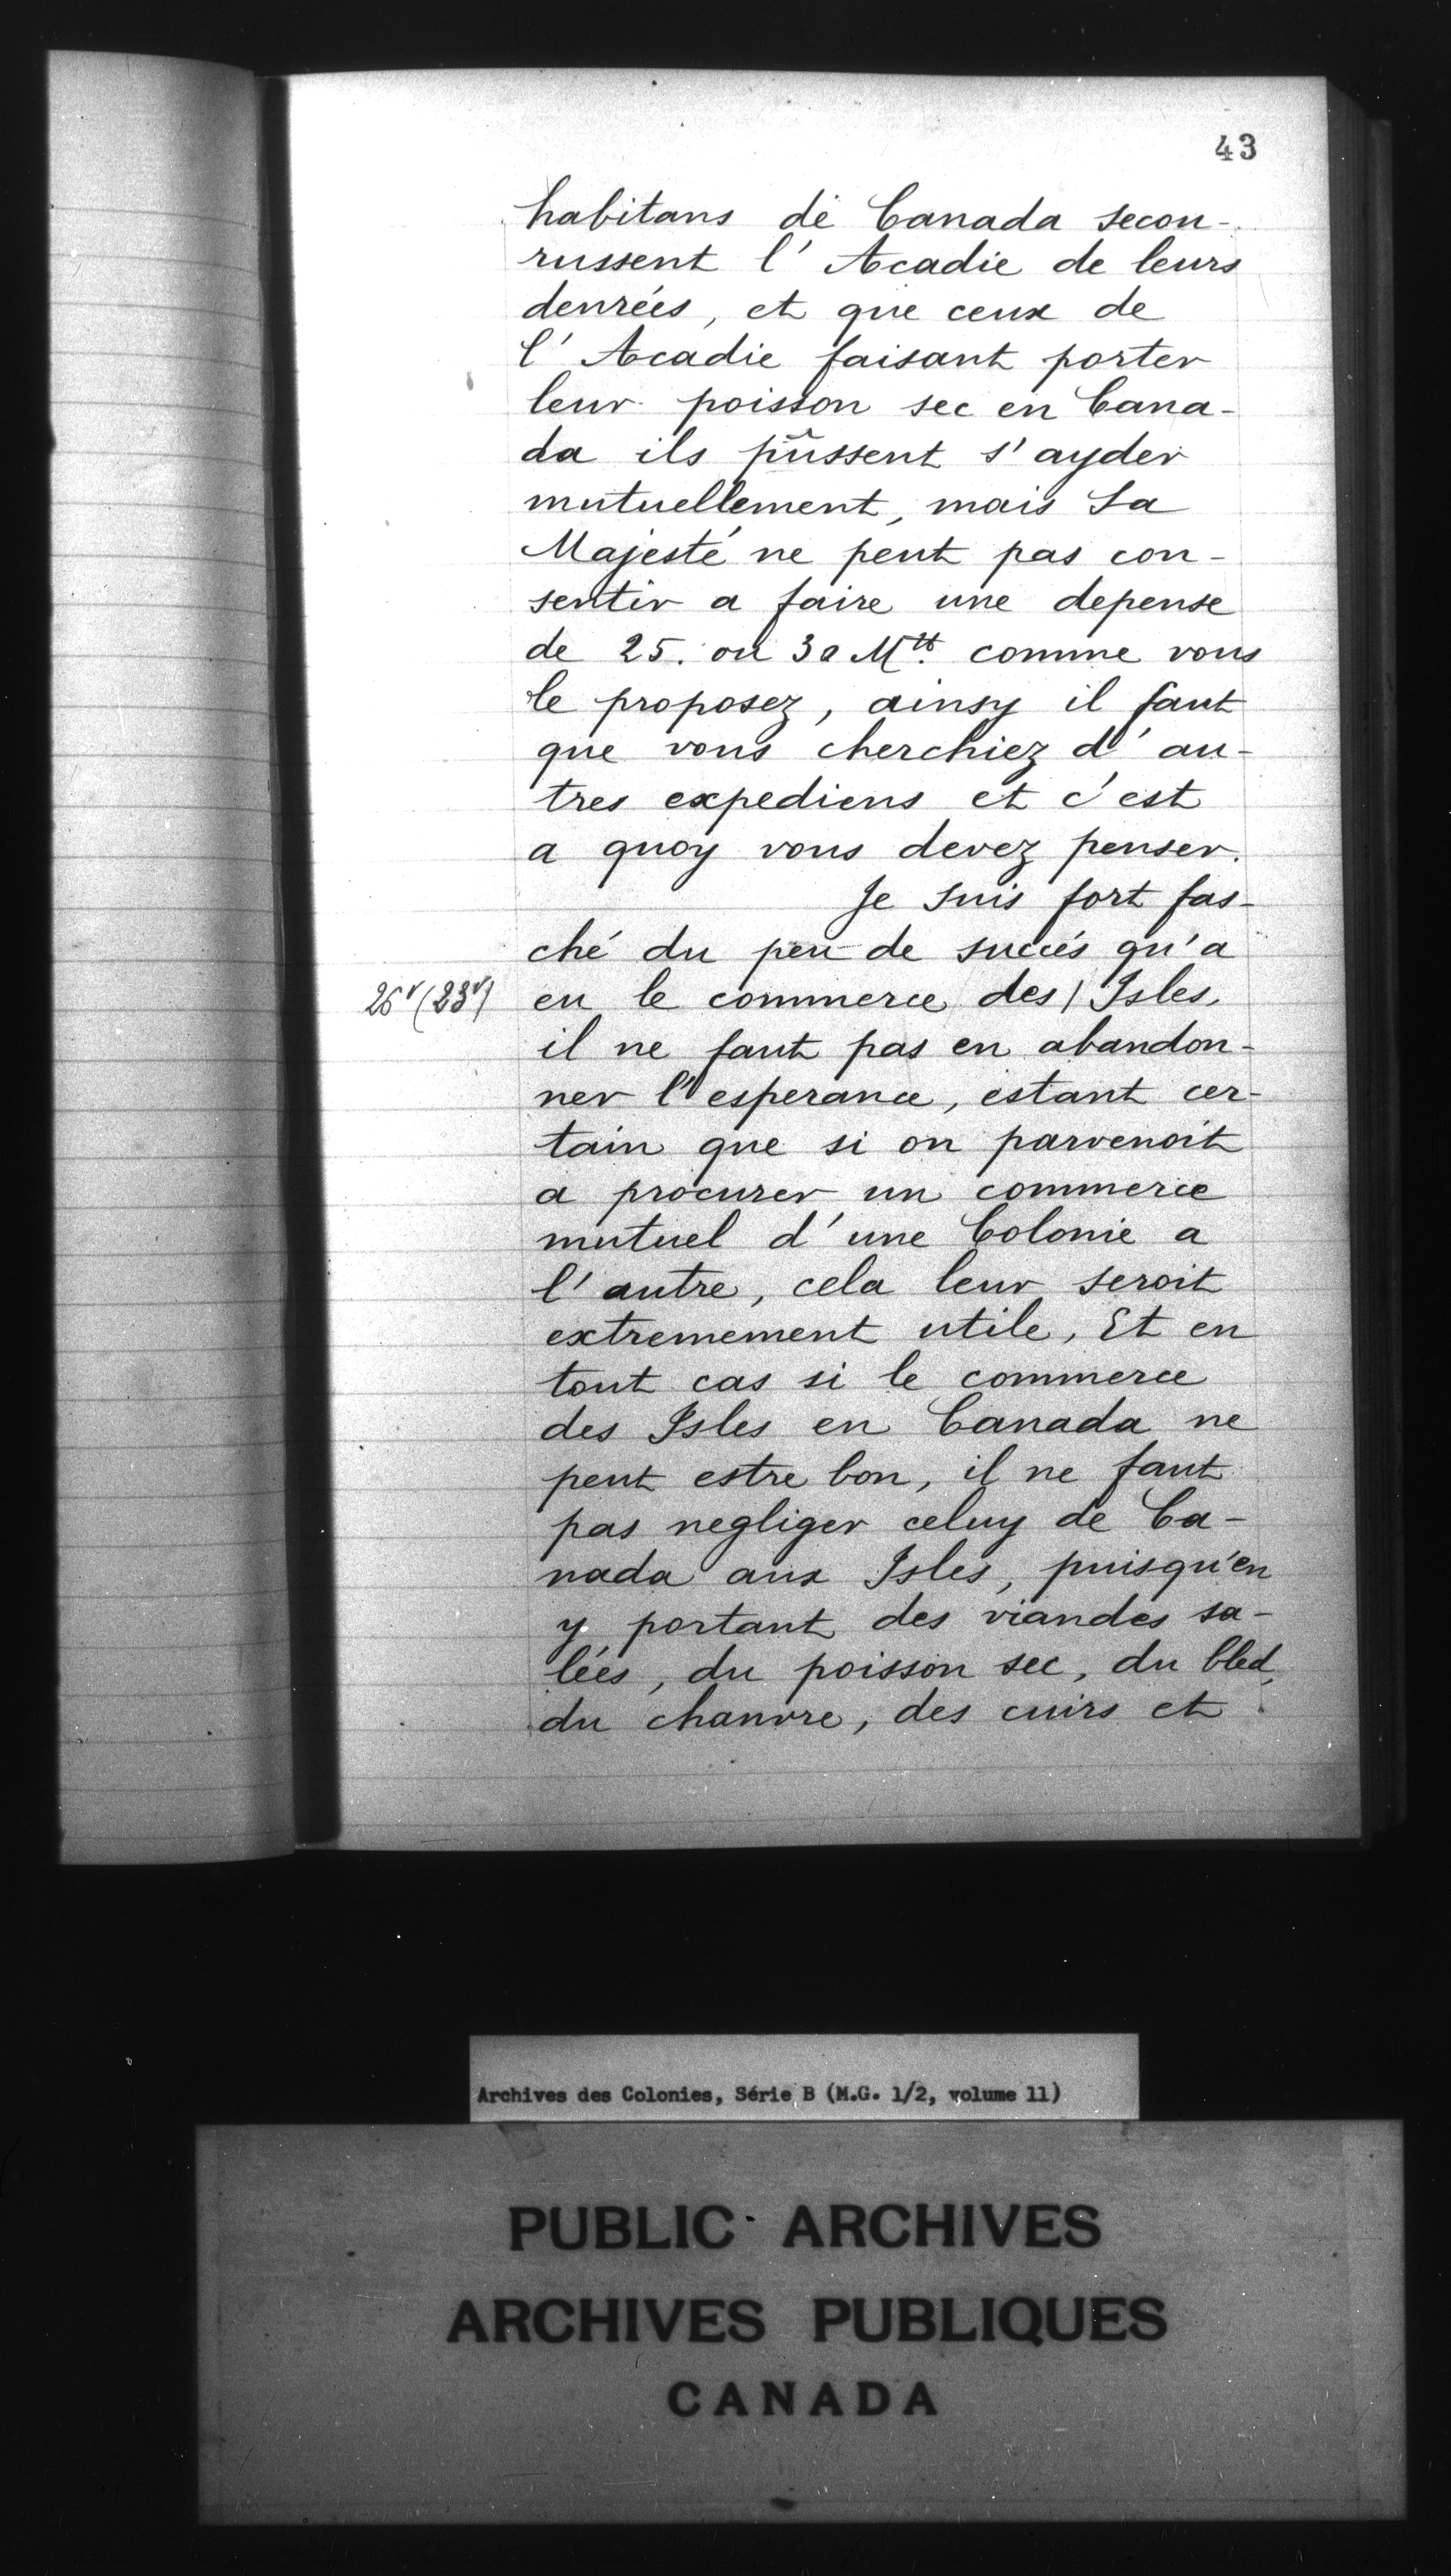 43
habitans de Canada secou-
russent l'Acadie de leurs
denrées, et que ceux de
l'Acadie faisant porter
leur poisson sec en Cana-
da ils pûssent s'ayder
mutuellement, mais Sa
Majesté ne peut pas con-
sentir a faire une depense
de 25. ou 30 M^tt. comme vous
le proposez, ainsy il faut
que vous cherchiez d'au-
tres expediens et c'est
a quoy vous devez penser.
Je suis fort fas-
ché du peu de succés qu'a
26^v (23^v) eu le commerce des / Isles,
il ne faut pas en abandon-
ner l'esperance, estant cer-
tain que si on parvenoit
a procurer un commerce
mutuel d'une Colonie a
l'autre, cela leur seroit
extremement utile, Et en
tout cas si le commerce
des Isles en Canada ne
peut estre bon, il ne faut
pas negliger celuy de Ca-
nada aux Isles, puisqu'en
y portant des viandes sa-
lées, du poisson sec, du bled,
du chanvre, des cuirs et
Archives des Colonies, Série B (M.G. 1/2, volume 11)
PUBLIC ARCHIVES
ARCHIVES PUBLIQUES
CANADA